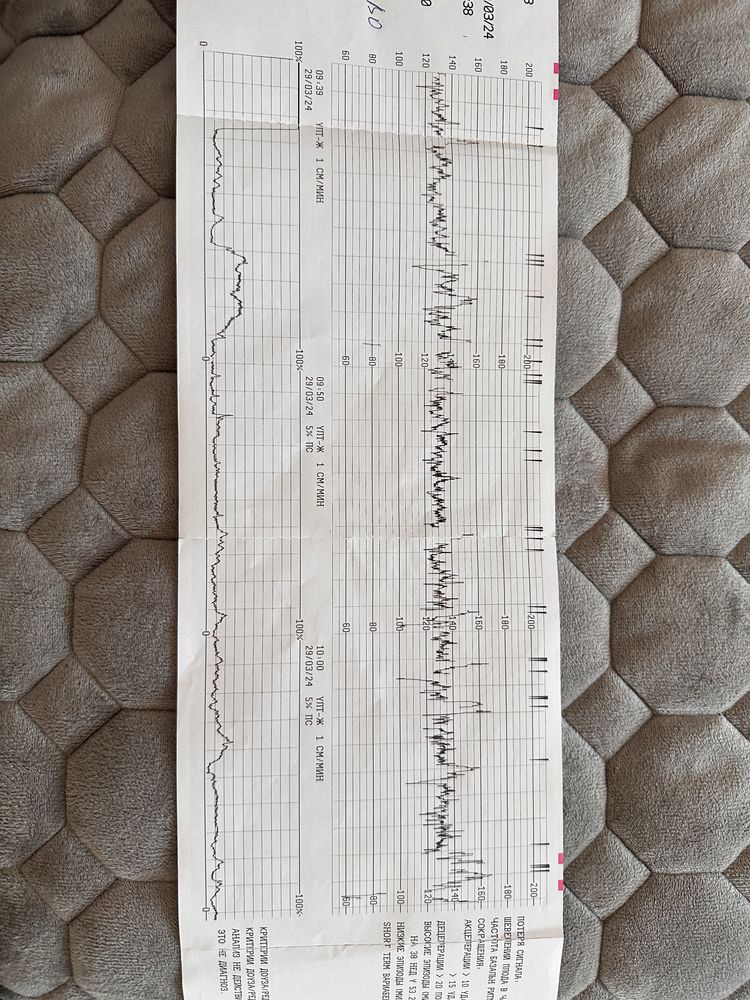 /03/24
38
200 180 160 140 120 100 80 60
100%
0
09:39 УЛТ-Ж 1 СМ/МИН
29/03/24
200 180 160 120 100 80 60
100%
0
09:50 УЛТ-Ж 1 СМ/МИН
29/03/24 5% ПС
200 180 160 140 120 100 80 60
100%
0
10:00 УЛТ-Ж 1 СМ/МИН
29/03/24 5% ПС
200 180 160 140 120 100 60
100%
0
ПОТЕРЯ СИГНАЛА:
ШЕВЕЛЕНИЙ ПЛОДА В Ч
ЧАСТОТА БАЗАЛЬН РИТМ
СОКРАЩЕНИЯ:
АКЦЕЛЕРАЦИИ > 10 УД
> 15 УД
ДЕЦЕЛЕРАЦИИ > 20 ПО
ВЫСОКИЕ ЭПИЗОДЫ (М
НА 38 НЕД У 53.2
НИЗКИЕ ЭПИЗОДЫ (МИ
SHORT TERM ВАРИАБЕЛ
КРИТЕРИИ ДОУЗА/РЕД
КРИТЕРИИ ДОУЗА/РЕД
АНАЛИЗ НЕ ДЕЙСТВ
ЭТО НЕ ДИАГНОЗ.